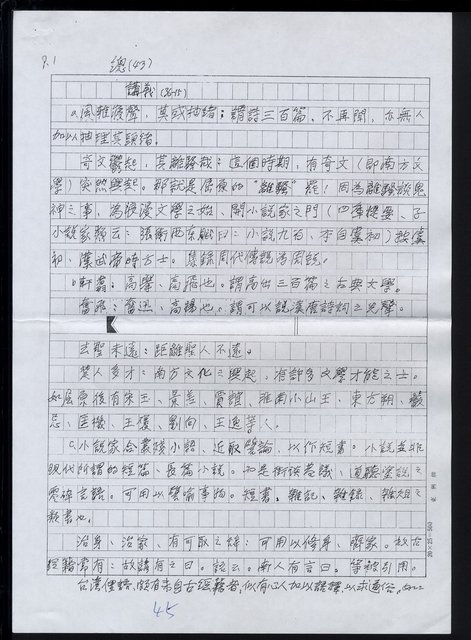 P.1
總(43)
講義(36-15)
a.風雅寢聲，莫或抽緒：謂詩三百篇，不再聞，亦無人
加以抽理其頭緒。
奇文鬱起，其離騷哉：這個時期，有奇文（即南方文
學）突然興起。那就是屈原的“離騷”罷！因為離騷談鬼
神之事，為浪漫文學之始、開小說家之門（四庫提要、子
小說家類云：張衡西京賦曰：小說九百、本自虞初）按虞
初、漢武帝時方士。集錄周代傳說為周說。
b.軒翥：高舉、高飛也。謂高出三百篇之古典文學。
奮飛：奮迅、高揚也。謂可以說漢唐詩詞之先聲。
去聖未遠：距離聖人不遠。
楚人多才：南方文化之興起，有許多文學才能之士。
如屈原後有宋玉、景差、賈誼、淮南小山王、東方朔、嚴
忌、匡機、王褒、劉向、王逸等人。
c.小說家合叢殘小語、近取譬論、以作短書。小說並非
現代所謂的短篇、長篇小說。而是街談巷議、道聽塗說之
零碎言語。可用以譬喻事物。短書、雜記、雜錄、雜俎之
類書也。
治身、治家、有可取之辭：可用以修身、齊家。故古
經籍常有：故諺有之曰。語云。斯人有言曰。等被引用。
台灣俚語，頗有來自古經籍者，似有心人加以
45
20×25=500